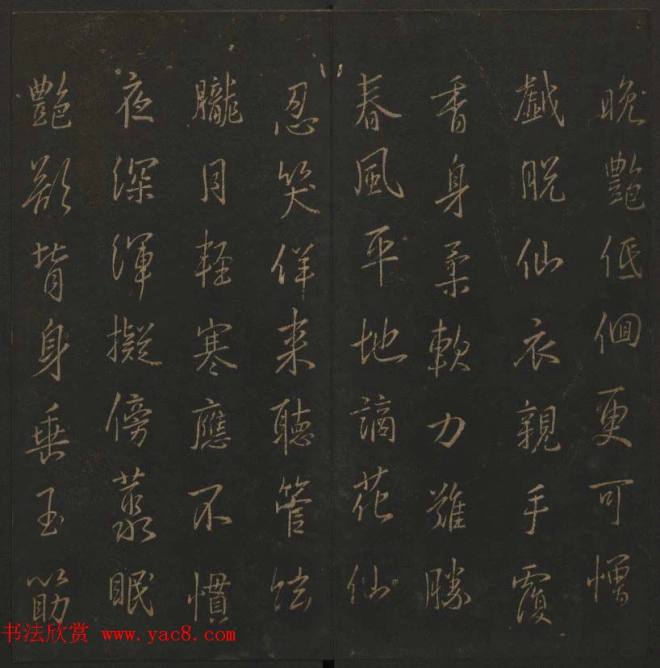 晚艷低徊更可憎
戲脫仙衣親手覆
香身柔軟力難勝
春風平地謫花仙
忍笑佯來聽管弦
朧月輕寒應不慣
夜深渾擬傍叢眠
艷歌背身垂玉筯
书法欣赏 www.yac8.com